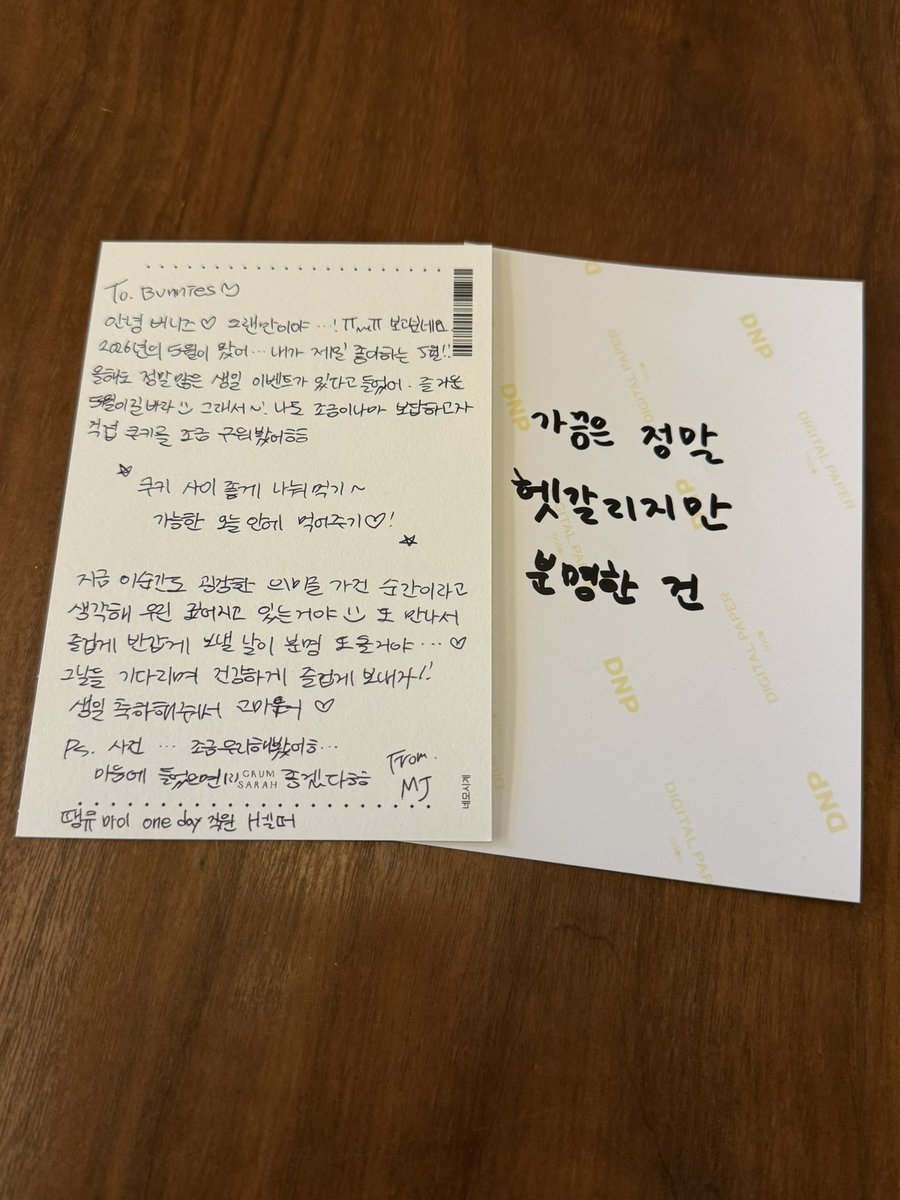 To. Bunnies♡
안녕 버니즈♡ 오랜만이야 …! ㅠ^ㅠ 보고싶네요
2026년의 5월이 왔어… 내가 제일 좋아하는 5월!!
올해도 정말 많은 생일 이벤트가 있다고 들었어. 즐거운
5월이길 바라 :) 그래서~ 나도 조금이나마 보답하고자
직접 쿠키를 조금 구워봤어ㅎㅎ
☆ 쿠키 사이 좋게 나눠먹기~
가능한 오늘 안에 먹어주기♡! ☆
지금 이순간도 굉장한 의미를 가진 순간이라고
생각해 우린 깊어지고 있는거야 :) 또 만나서
즐겁게 반갑게 보낼 날이 분명 또 올거야… ♡
그날을 기다리며 건강하게 즐겁게 보내자!!
생일 축하해줘서 고마워 ♡
Ps. 사진 … 조금 무리해봤어ㅎ…
마음에 들었으면 좋겠다ㅎㅎ
GRUM
SARAH
From.
MJ
네모시계
땡큐 마이 one day 직원 H헬퍼
가끔은 정말
헷갈리지만
분명한 건
DNP
DIGITAL PAPER
DNP
DIGITAL PAPER
DNP
DIGITAL PAPER
DNP
DIGITAL PAP
DNP